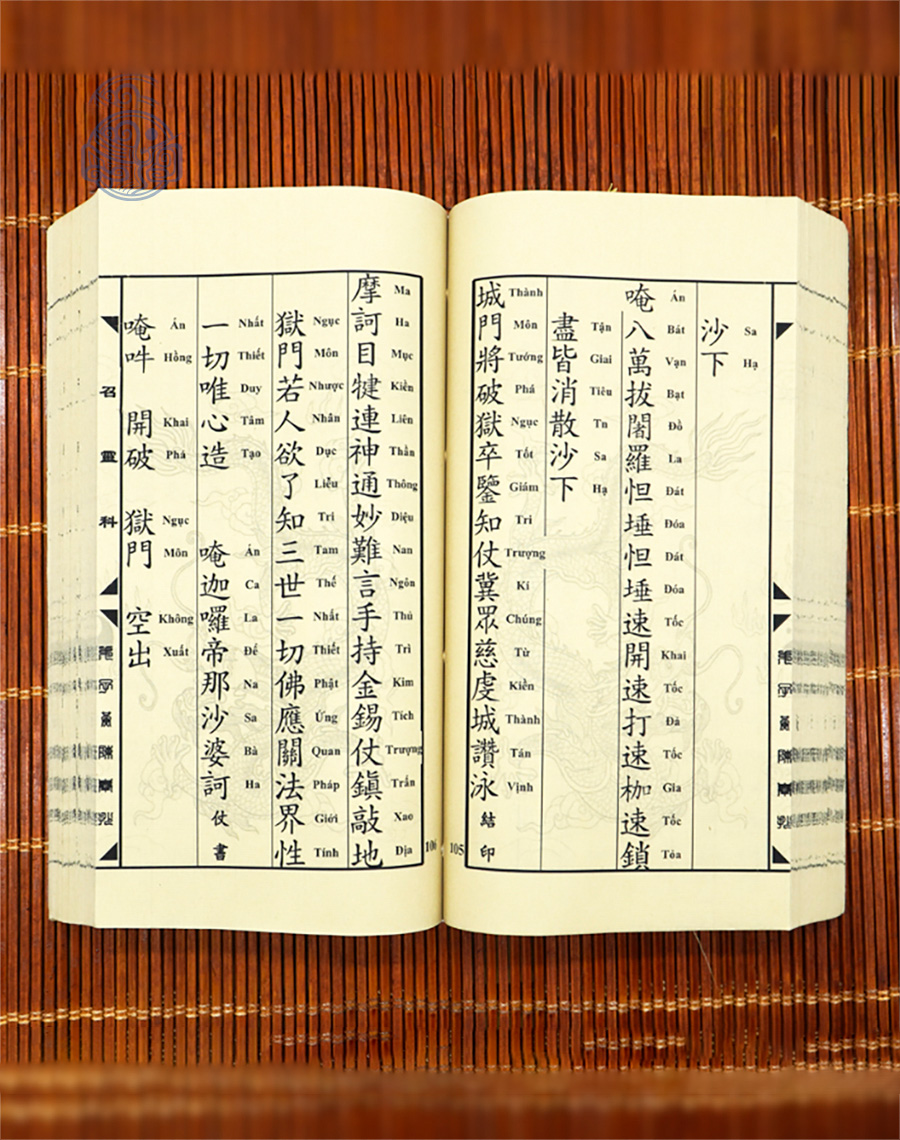 沙下
Sa Hạ
唵八萬拔闍羅怛埵怛埵速開速打速枷速鎖
Án Bát Vạn Bạt Đồ La Đát Đóa Dát Dóa Tốc Khai Tốc Đả Tốc Gia Tốc Tỏa
盡皆消散沙下
Tận Giai Tiêu Tn Sa Hạ
城門將破獄卒鑒知仗冀眾慈虔城讚泳結印
Thành Môn Tướng Phá Ngục Tốt Giám Tri Trượng Kí Chúng Từ Kiền Thành Tán Vịnh
105
106
摩訶目犍連神通妙難言手持金錫仗鎮敲地
Ma Ha Mục Kiền Liên Thần Thông Diệu Nan Ngôn Thủ Trì Kim Tích Trượng Trấn Xao Địa
獄門若人欲了知三世一切佛應關法界性
Ngục Môn Nhược Nhân Dục Liễu Tri Tam Thế Nhất Thiết Phật Ứng Quan Pháp Giới Tính
一切唯心造 唵迦囉帝那沙婆訶仗書
Nhất Thiết Duy Tâm Tạo Án Ca La Đế Na Sa Bà Ha
唵吽 開破 獄門 空出
Án Hồng Khai Phá Ngục Môn Không Xuất
召靈科